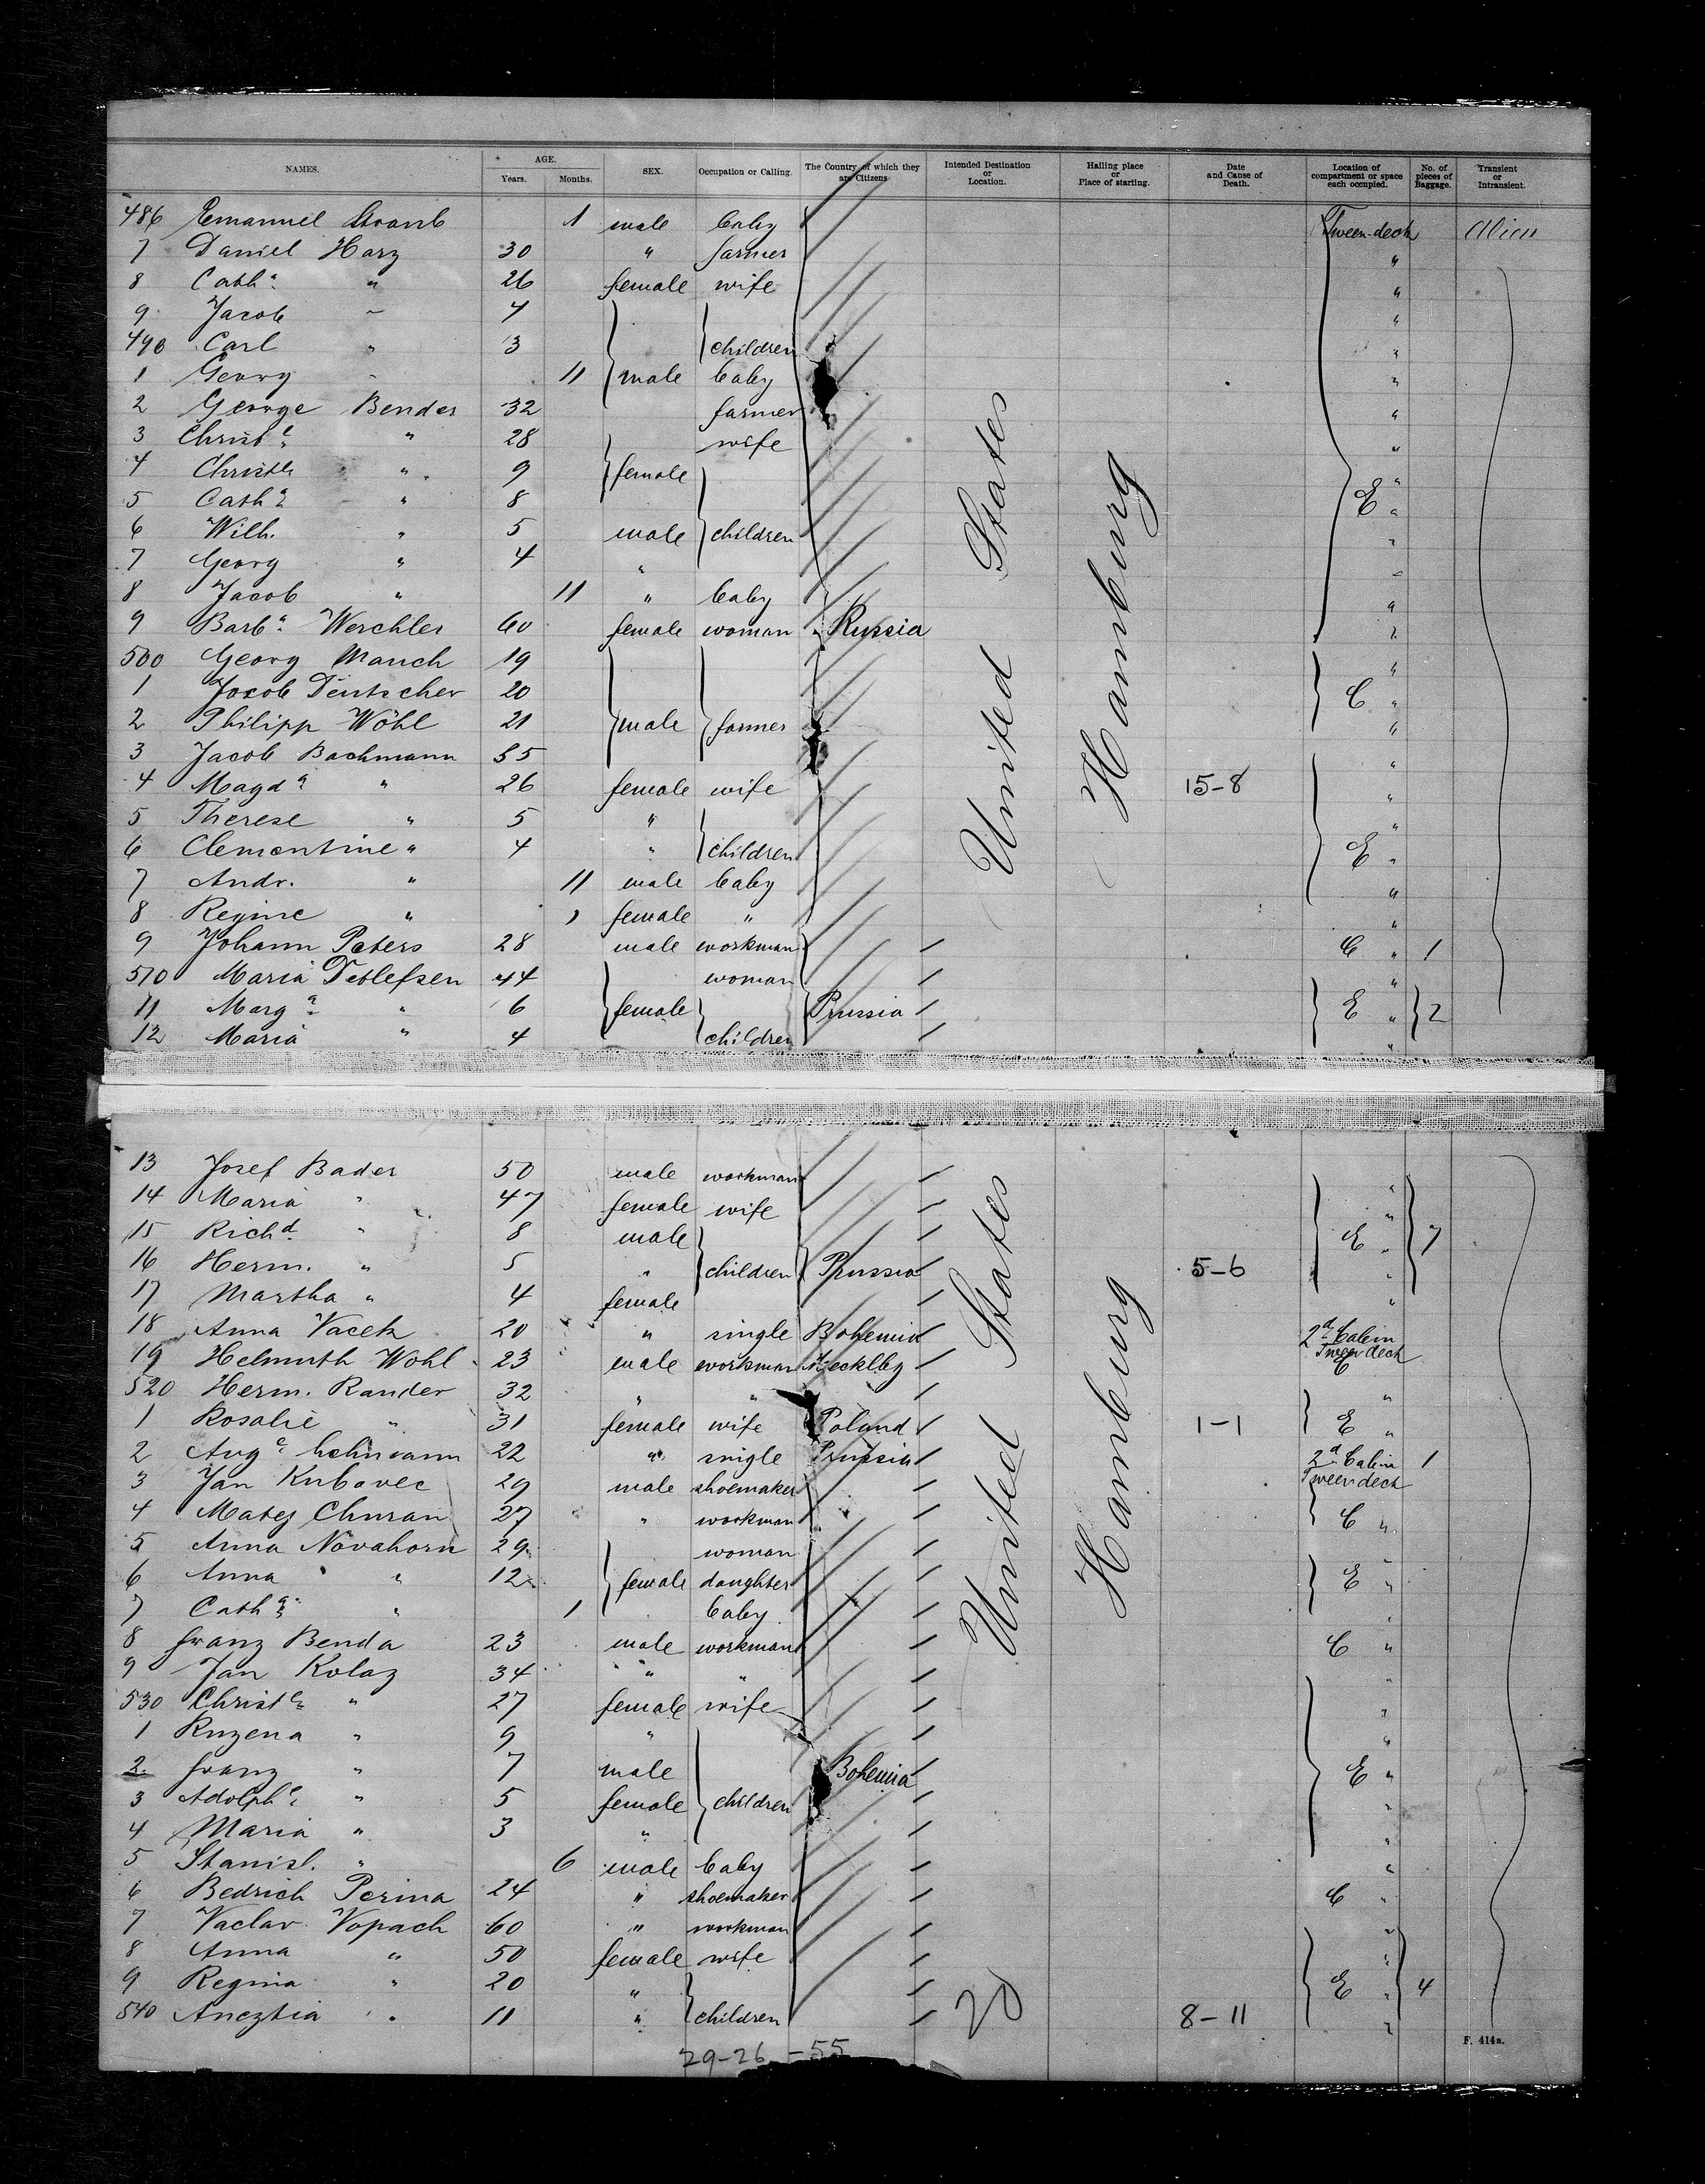 NAMES. AGE. Years. Months. SEX. Occupation or Calling. The Country of which they are Citizens Intended Destination or Location. Hailing place or Place of starting. Date and Cause of Death. Location of compartment or space each occupied. No. of pieces of Baggage. Transient or Intransient.
486 Emanuel Straub 1 male baby Tween-deck Alien
7 Daniel Harz 30 " farmer "
8 Cath.a " 26 female wife "
9 Jacob " 4 "
490 Carl " 3 children "
1 Georg " 11 male baby "
2 George Bender 32 farmer "
3 Christ.e " 28 wife "
4 Christ.e " 9 female "
5 Cath.a " 8 E "
6 Wilh. " 5 male children "
7 Georg " 4 " "
8 Jacob " 11 " baby "
9 Barb.a Werchler 60 female woman Russia "
500 Georg Mauch 19 "
1 Jacob Deutscher 20 C "
2 Philipp Wöhl 21 male farmer "
3 Jacob Bachmann 35 "
4 Magd.a " 26 female wife 15-8 "
5 Therese " 5 " "
6 Clementine " 4 " children E "
7 Andr. " 11 male baby "
8 Regine " 1 female " "
9 Johann Peters 28 male workman C " 1
510 Maria Detlefsen 44 woman "
11 Marg.a " 6 female Prussia E " 2
12 Maria " 4 children "
United States
Hamburg
13 Josef Bader 50 male workman "
14 Maria " 47 female wife "
15 Rich.d " 8 male E " 7
16 Herm. " 5 " children Prussia 5-6 "
17 Martha " 4 female "
18 Anna Vacek 20 " single Bohemia 2d Cabin
19 Helmuth Wohl 23 male workman Mecklbg Tween deck C
520 Herm. Rander 32 " " "
1 Rosalie " 31 female wife Poland 1-1 E "
2 Aug.e Lehmann 22 " single Prussia 2d Cabin 1
3 Jan Kubovec 29 male shoemaker Tween deck
4 Matej Churan 27 " workman C "
5 Anna Novahorn 29 woman "
6 Anna " 12 female daughter E "
7 Cath.a " 1 baby "
8 Franz Benda 23 male workman C "
9 Jan Kolaz 34 " " "
530 Christ.e " 27 female wife "
1 Ruzena " 9 " "
2. Franz " 7 male Bohemia E "
3 Adolph.e " 5 female children "
4 Maria " 3 " "
5 Stanisl. " 6 male baby "
6 Bedrich Perina 24 " shoemaker C "
7 Vaclav Vopach 60 " workman "
8 Anna " 50 female wife "
9 Regina " 20 " E " 4
540 Aneztia " 11 " children 8-11 "
United States
Hamburg
20
29-26-55
F. 414a.